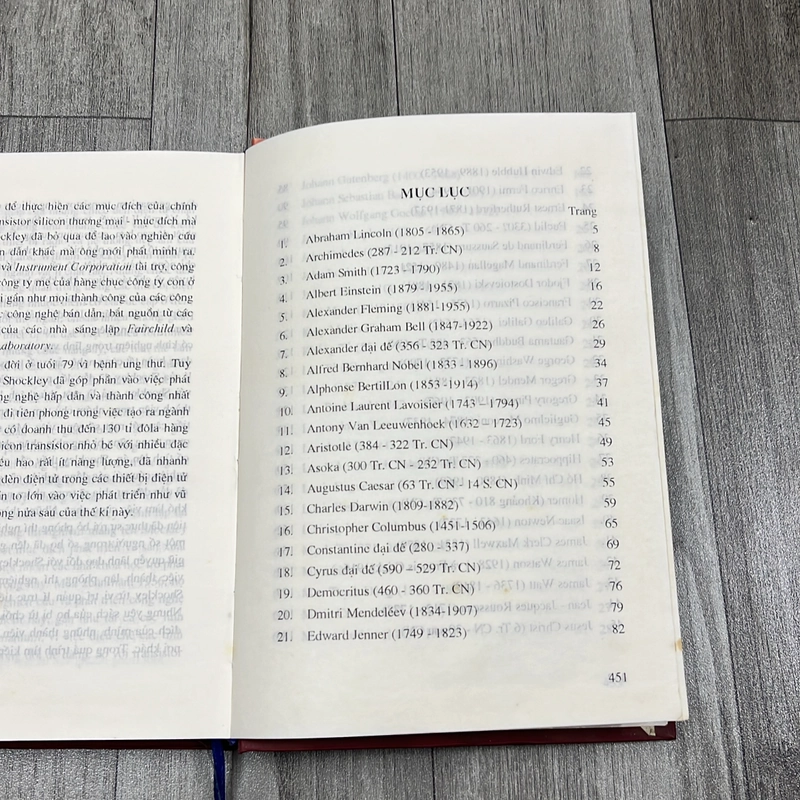 để thực hiện các mục đích của chính
transistor silicon thương mại - mục đích mà
ockley đã bỏ qua để lao vào nghiên cứu
n dẫn khác mà ông mới phát minh ra.
và Instrument Corporation tài trợ, công
công ty mẹ của hàng chục công ty con ở
i gần như mọi thành công của các công
công nghệ bán dẫn, bắt nguồn từ các
của các nhà sáng lập Fairchild và
Laboratory.
đời ở tuổi 79 vì bệnh ung thư. Tuy
Shockley đã góp phần vào việc phát
ng nghệ hấp dẫn và thành công nhất
đi tiên phong trong việc tạo ra ngành
có doanh thu đến 130 tỉ đôla hàng
icon transistor nhỏ bé với nhiều đặc
êu hao rất ít năng lượng, đã nhanh
đèn điện tử trong các thiết bị điện tử
ần to lớn vào việc phát triển như vũ
ong nửa sau của thế kỉ này.
MỤC LỤC
Trang
1. Abraham Lincoln (1805 - 1865) 5
2. Archimedes (287 - 212 Tr. CN) 8
3. Adam Smith (1723 - 1790) 12
4. Albert Einstein (1879 - 1955) 16
5. Alexander Fleming (1881-1955) 22
6. Alexander Graham Bell (1847-1922) 26
7. Alexander đại đế (356 - 323 Tr. CN) 29
8. Alfred Bernhard Nobel (1833 - 1896) 34
9. Alphonse BertilLon (1853 -1914) 37
10. Antoine Laurent Lavoisier (1743 – 1794) 41
11. Antony Van Leeuwenhoek (1632 – 1723) 45
12. Aristotle (384 - 322 Tr. CN) 49
13. Asoka (300 Tr. CN - 232 Tr. CN) 53
14. Augustus Caesar (63 Tr. CN - 14 S. CN) 55
15. Charles Darwin (1809-1882) 59
16. Christopher Columbus (1451-1506) 65
17. Constantine đại đế (280 - 337) 69
18. Cyrus đại đế (590 – 529 Tr. CN) 72
19. Democritus (460 - 360 Tr. CN) 76
20. Dmitri Mendeléev (1834-1907) 79
21. Edward Jenner (1749 - 1823) 82
451